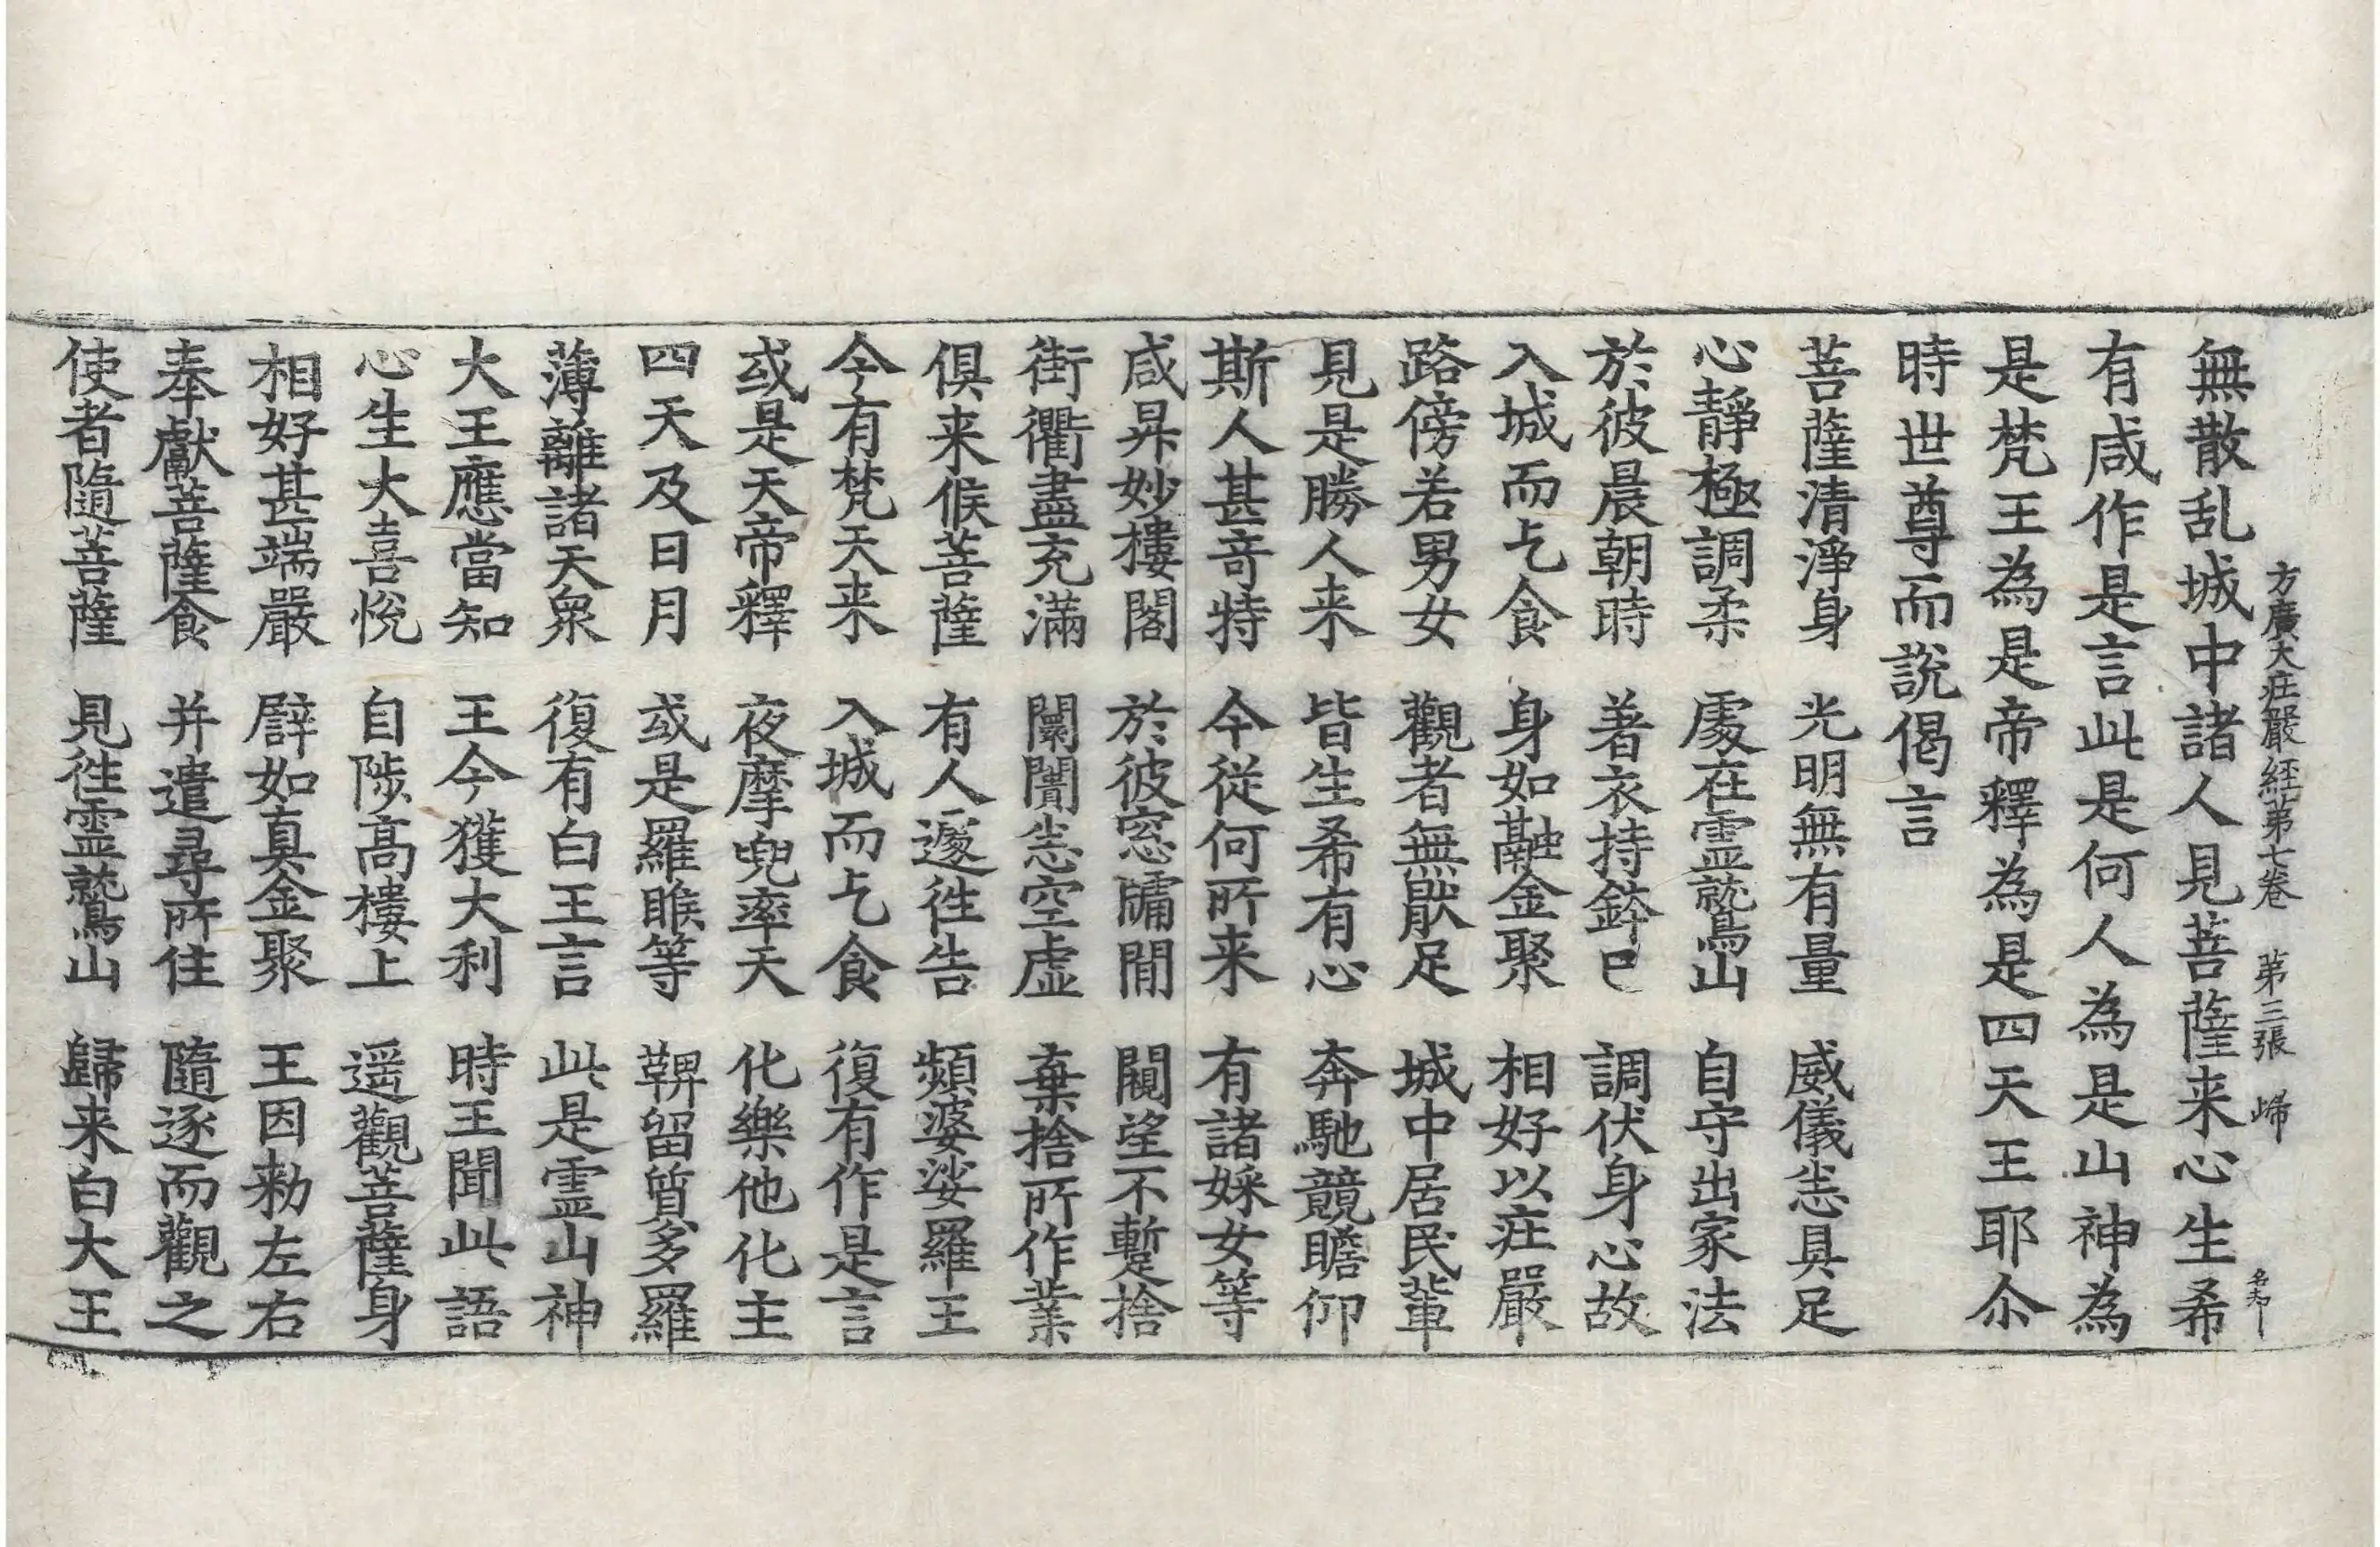 方廣大莊嚴經苐七卷 苐三張 歸
無散乱城中諸人見菩薩来心生希
有咸作是言此是何人為是山神為
是梵王為是帝釋為是四天王耶尒
時世尊而說偈言
菩薩清淨身 光明無有量 威儀悉具足
心靜極調柔 處在霊鷲山 自守出家法
於彼晨朝時 著衣持鉢已 調伏身心故
入城而乞食 身如融金聚 相好以莊嚴
路傍若男女 觀者無猒足 城中居民輩
見是勝人来 皆生希有心 奔馳競瞻仰
斯人甚竒特 今從何所来 有諸婇女等
咸昇妙樓閣 於彼窓牖閒 闚望不蹔捨
街衢盡充滿 闤闠悉空虚 棄捨所作業
俱来候菩薩 有人遽徃告 頻婆娑羅王
今有梵天来 入城而乞食 復有作是言
或是天帝釋 夜摩兜率天 化樂他化主
四天及日月 或是羅睺等 鞞留質多羅
薄離諸天衆 復有白王言 此是霊山神
大王應當知 王今獲大利 時王聞此語
心生大喜悅 自陟高樓上 遥觀菩薩身
相好甚端嚴 譬如真金聚 王因勑左右
奉獻菩薩食 并遣尋所住 隨逐而觀之
使者隨菩薩 見徃霊鷲山 歸来白大王